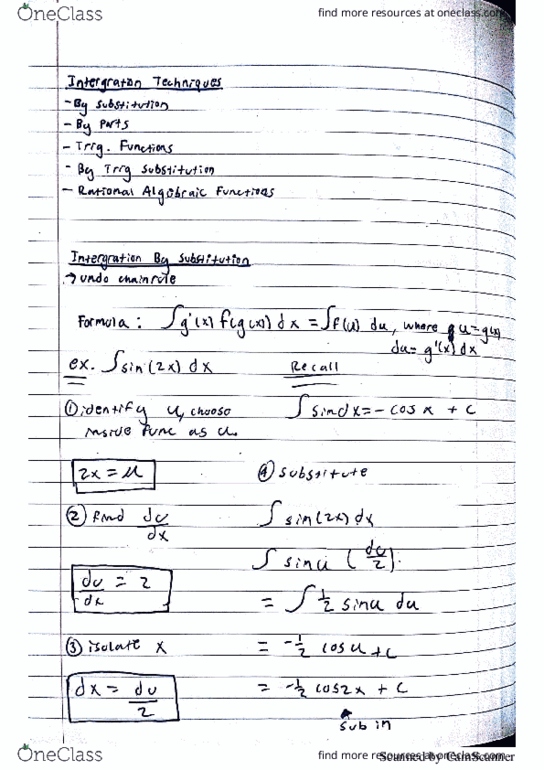 OneClass
find more resources at oneclass.com
Intergration Techniques
- By substitution
- By Parts
- Trig. Functions
- By Trig Substitution
- Rational Algebraic Functions
Intergration By Substitution
→ undo chainrule
Formula: ∫g'(x) f(g(x)) dx = ∫f(u) du, where u=g(x)
du= g'(x) dx
ex. ∫sin(2x) dx
Recall
① identify u, choose
inside func as u.
∫sindx=-cos x + c
2x = u
④ substitute
② find du/dx
∫ sin(2x) dx
∫ sinu (du/2).
du/dx = 2
= ∫ 1/2 sinu du
③ isolate x
= -1/2 cosu +c
dx = du/2
= -1/2 cos2x + c
sub in
OneClass
find more resources at oneclass.com
Scanned by CamScanner